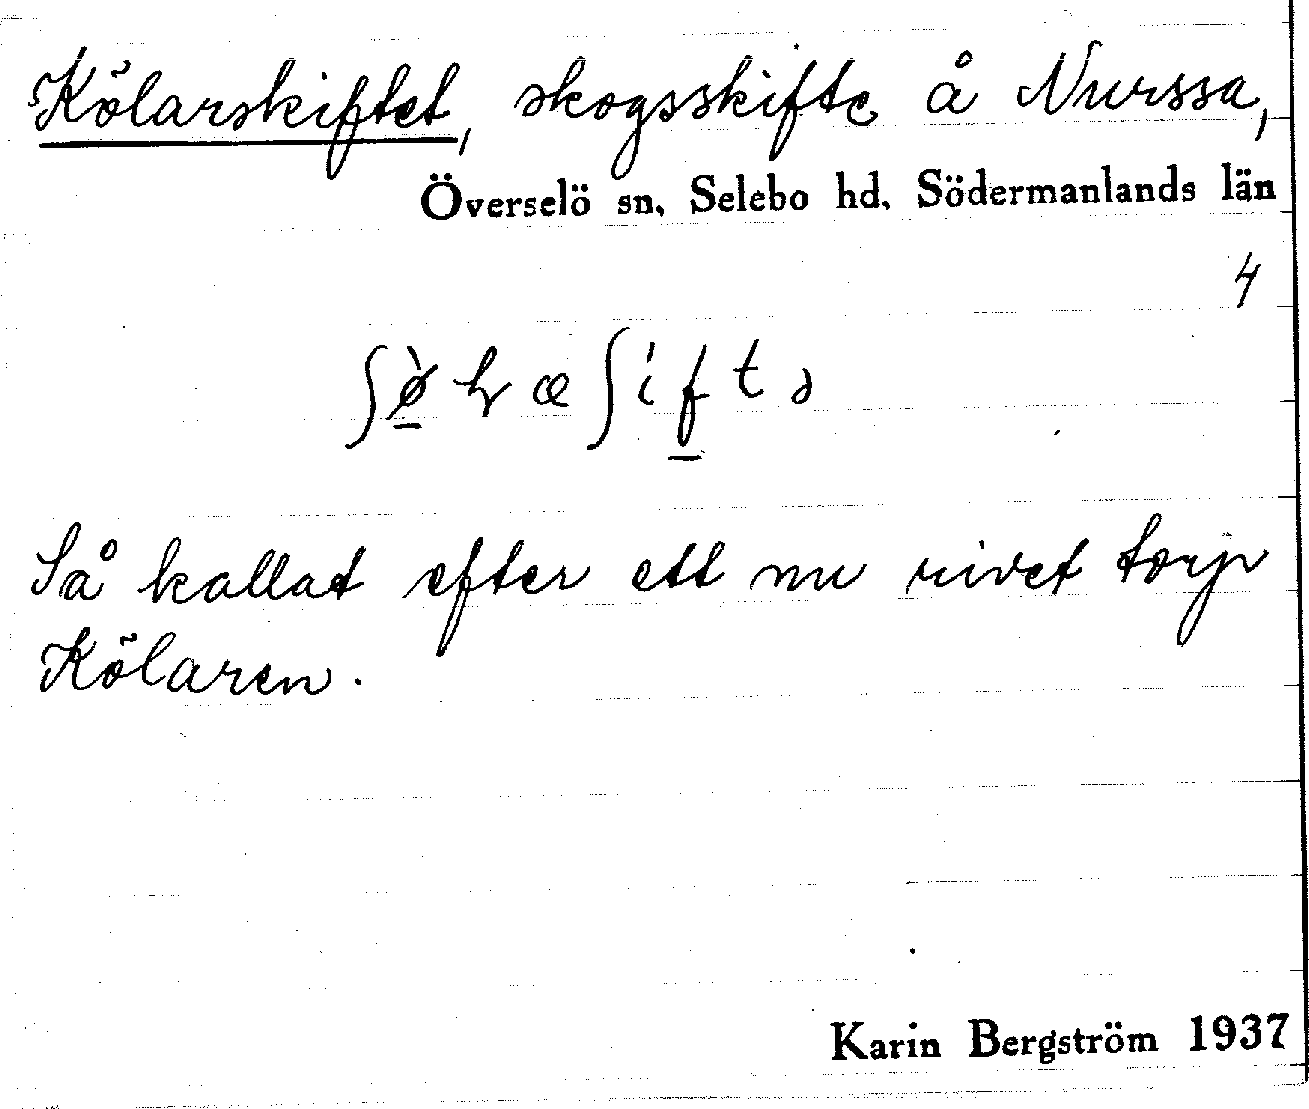 Kölarskiftet, skogsskifte å Nurssa,
Överselö sn, Selebo hd. Södermanlands län
4
Så kallat efter ett nu rivet torp
Kölaren.
Karin Bergström 1937